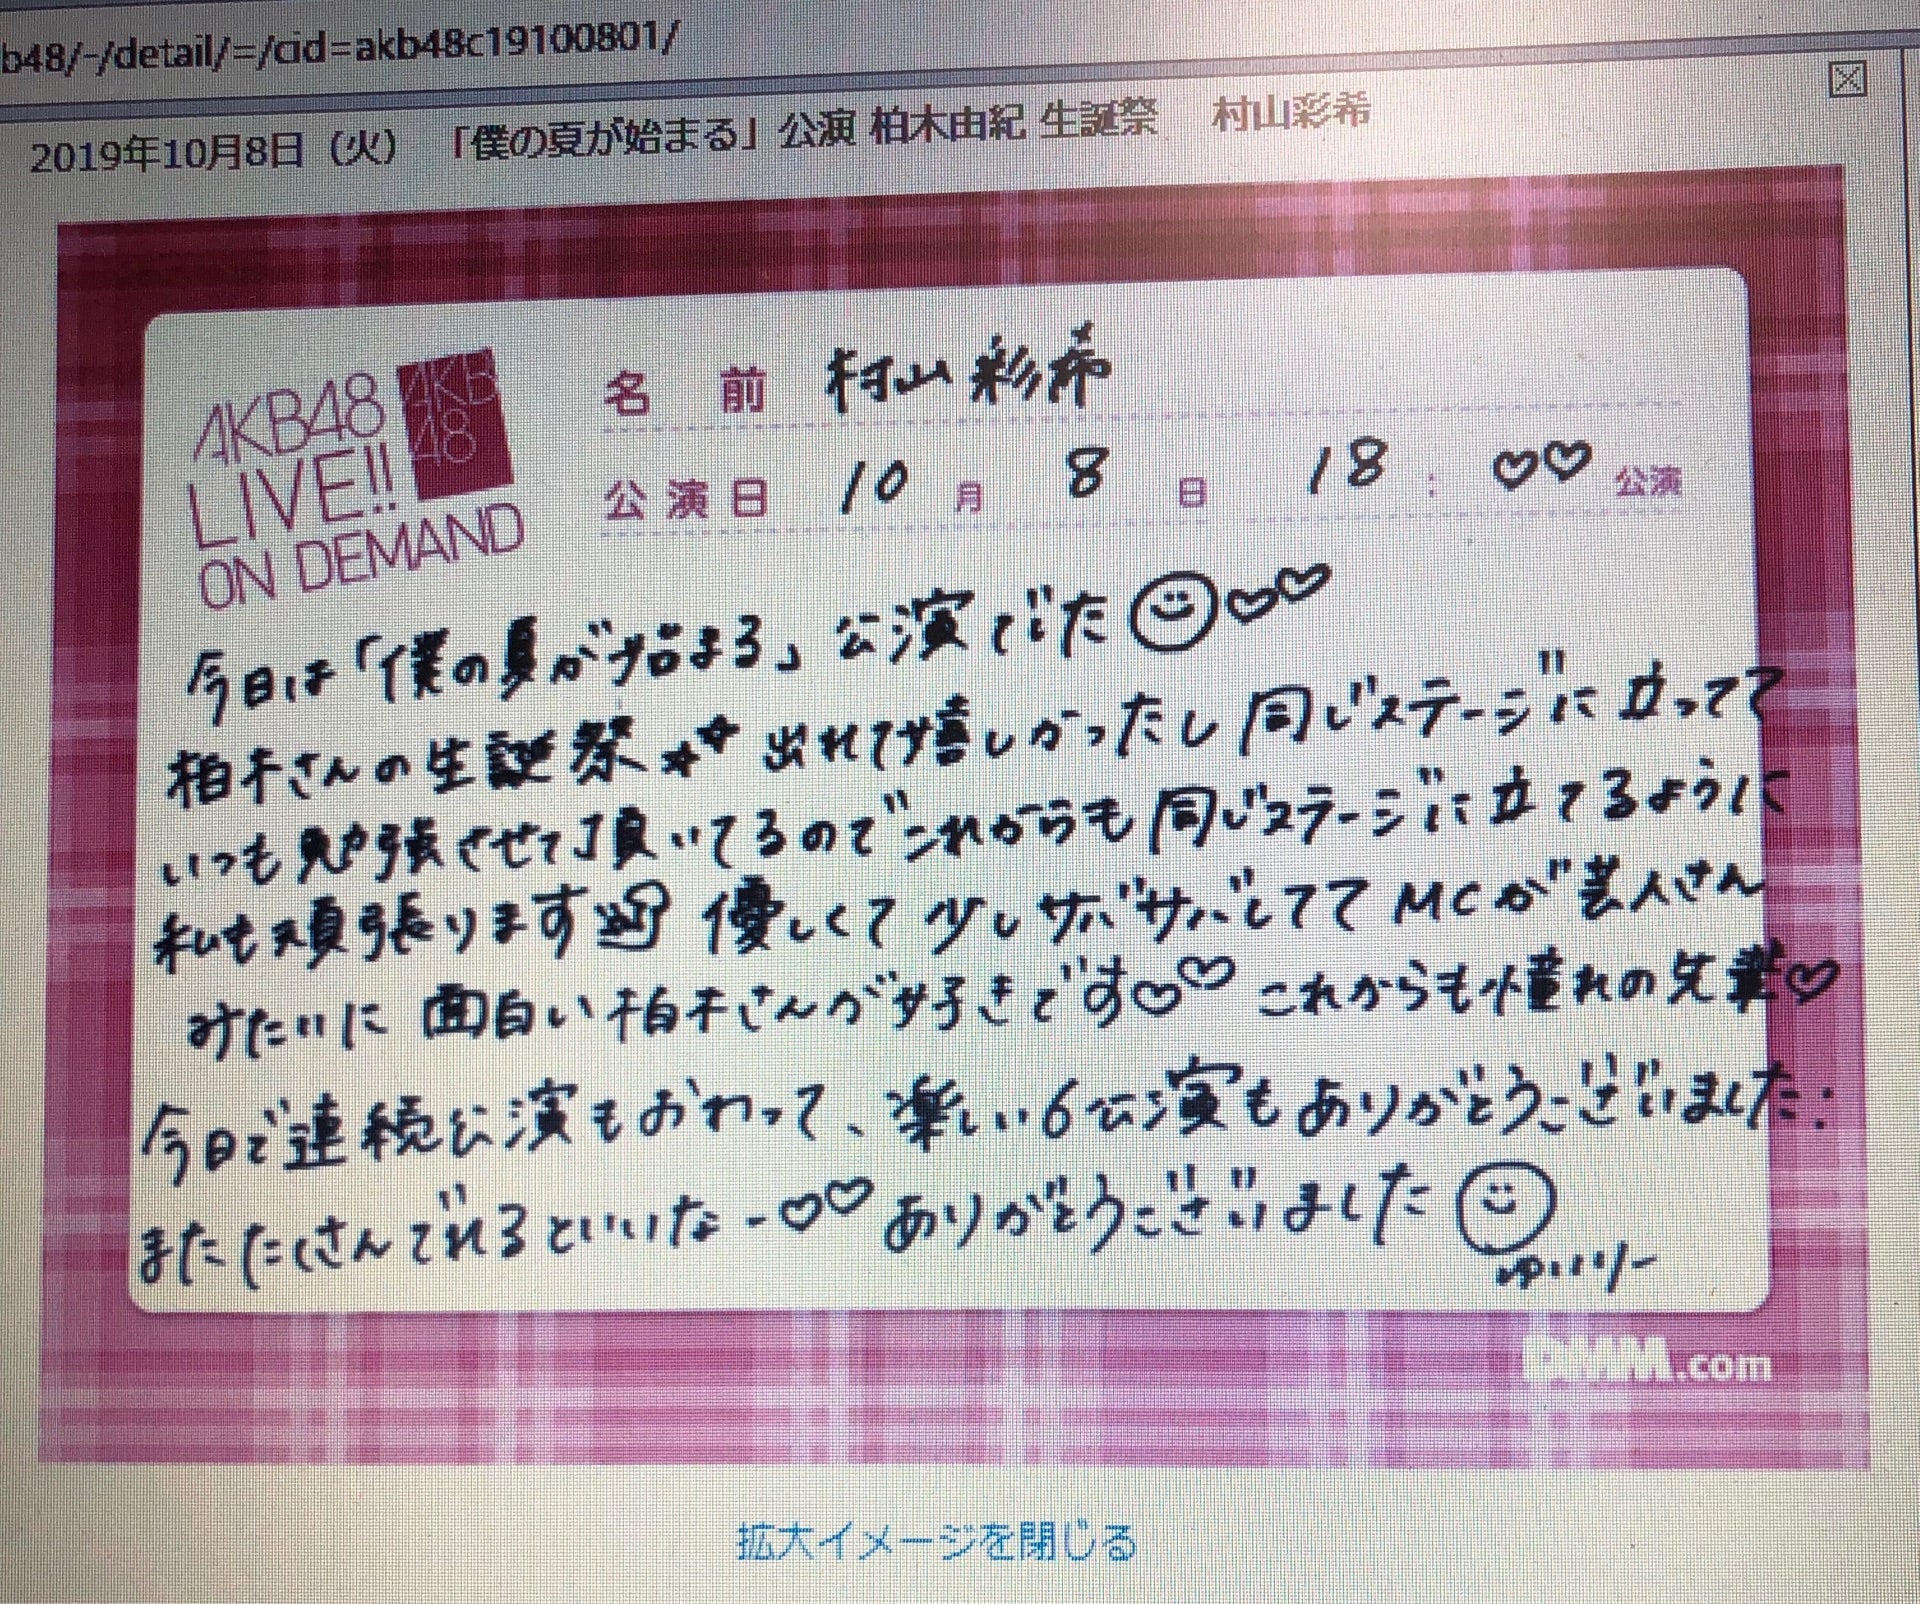 b48/-/detail/=/cid=akb48c19100801/
2019年10月8日（火） 「僕の夏が始まる」公演 柏木由紀 生誕祭 村山彩希
AKB48
LIVE!!
ON DEMAND
AKB
48
名 前 村山彩希
公演日 10 月 8 日 18 : ♡♡ 公演
今日は「僕の夏が始まる」公演でした☺♡♡
柏木さんの生誕祭 出れて嬉しかったし同じステージに立ってて
いつも勉強させて頂いてるのでこれからも同じステージに立てるように
私も頑張ります 優しくて少しサバサバしててMCが芸人さん
みたいに面白い柏木さんが好きです♡♡ これからも憧れの先輩♡
今日で連続公演もおわって、楽しい6公演もありがとうございました:
またたくさんでれるといいなー♡♡ありがとうございました☺
ゆいりー
DMM.com
拡大イメージを閉じる